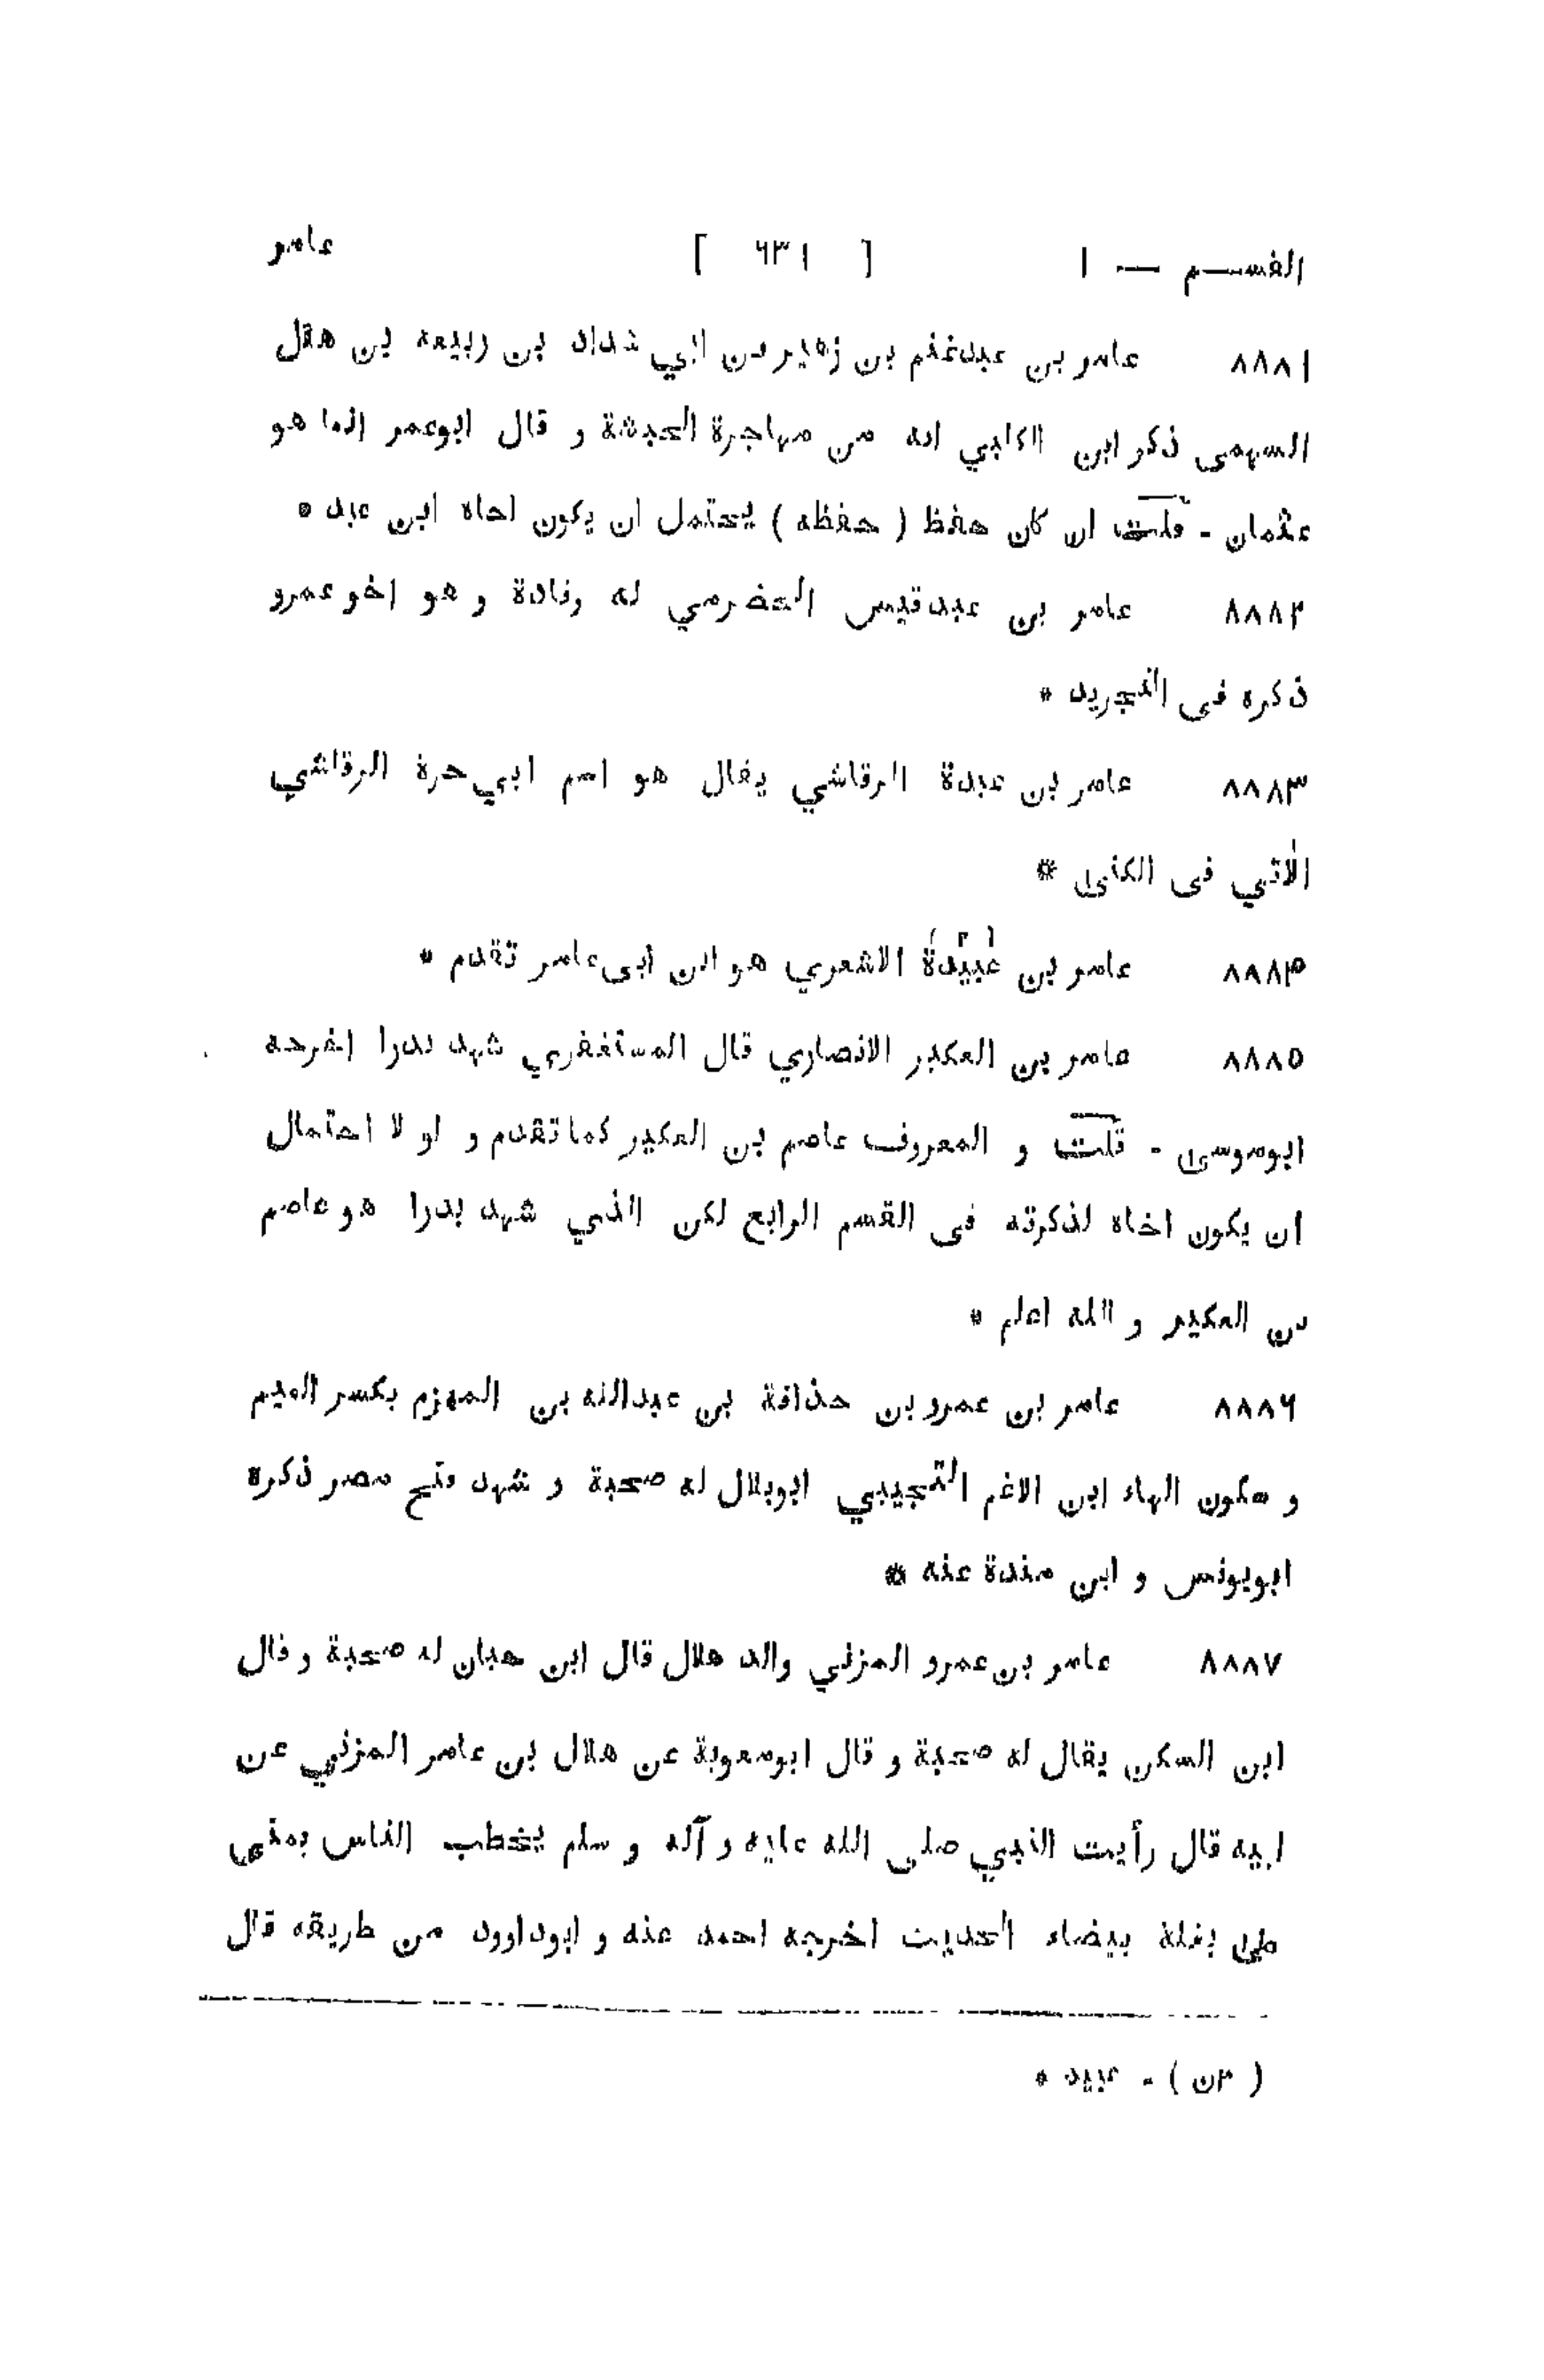 القسم — ١ [ ٦٣١ ] عامر
٨٨٨١ عامر بن عبدغنم بن زهير بن ابي شداد بن ربيعة بن هلال
السهمى ذكر ابن الكلبي انه من مهاجرة الحبشة و قال ابوعمر انما هو
عثمان - قلت ان كان حفظ ( حفظه ) يحتمل ان يكون اخاه ابن عبد *
٨٨٨٢ عامر بن عبدقيس الحضرمي له وفادة و هو اخو عمرو
ذكره فى التجريد *
٨٨٨٣ عامر بن عبدة الرقاشي يقال هو اسم ابي حرة الرقاشي
الآتي فى الكنى *
٨٨٨٤ عامر بن عُبَيْدة (٢) الاشعري هو ابن ابى عامر تقدم *
٨٨٨٥ عامر بن العكير الانصاري قال المستغفري شهد بدرا اخرجه
ابوموسى - قلت و المعروف عاصم بن العكير كما تقدم و لو لا احتمال
ان يكون اخاه لذكرته فى القسم الرابع لكن الذي شهد بدرا هو عاصم
بن العكير و الله اعلم *
٨٨٨٦ عامر بن عمرو بن حذافة بن عبدالله بن المهزم بكسر الميم
و سكون الهاء ابن الاغم التجيبي ابوبلال له صحبة و شهد فتح مصر ذكره
ابويونس و ابن مندة عنه *
٨٨٨٧ عامر بن عمرو المزني والد هلال قال ابن حبان له صحبة و قال
ابن السكن يقال له صحبة و قال ابومعوية عن هلال بن عامر المزني عن
ابيه قال رأيت النبي صلى الله عليه و آله و سلم يخطب الناس بمنى
على بغلة بيضاء الحديث اخرجه احمد عنه و ابوداوود من طريقه قال
( ٢ن ) - عبيد *